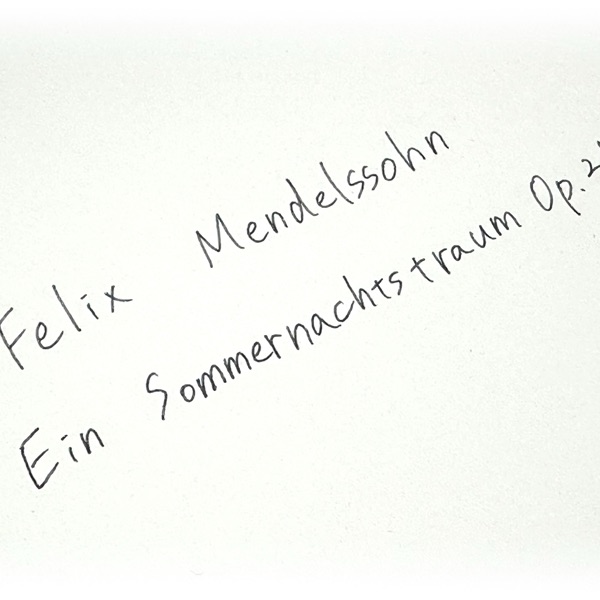 Felix Mendelssohn
Ein Sommernachtstraum Op.2